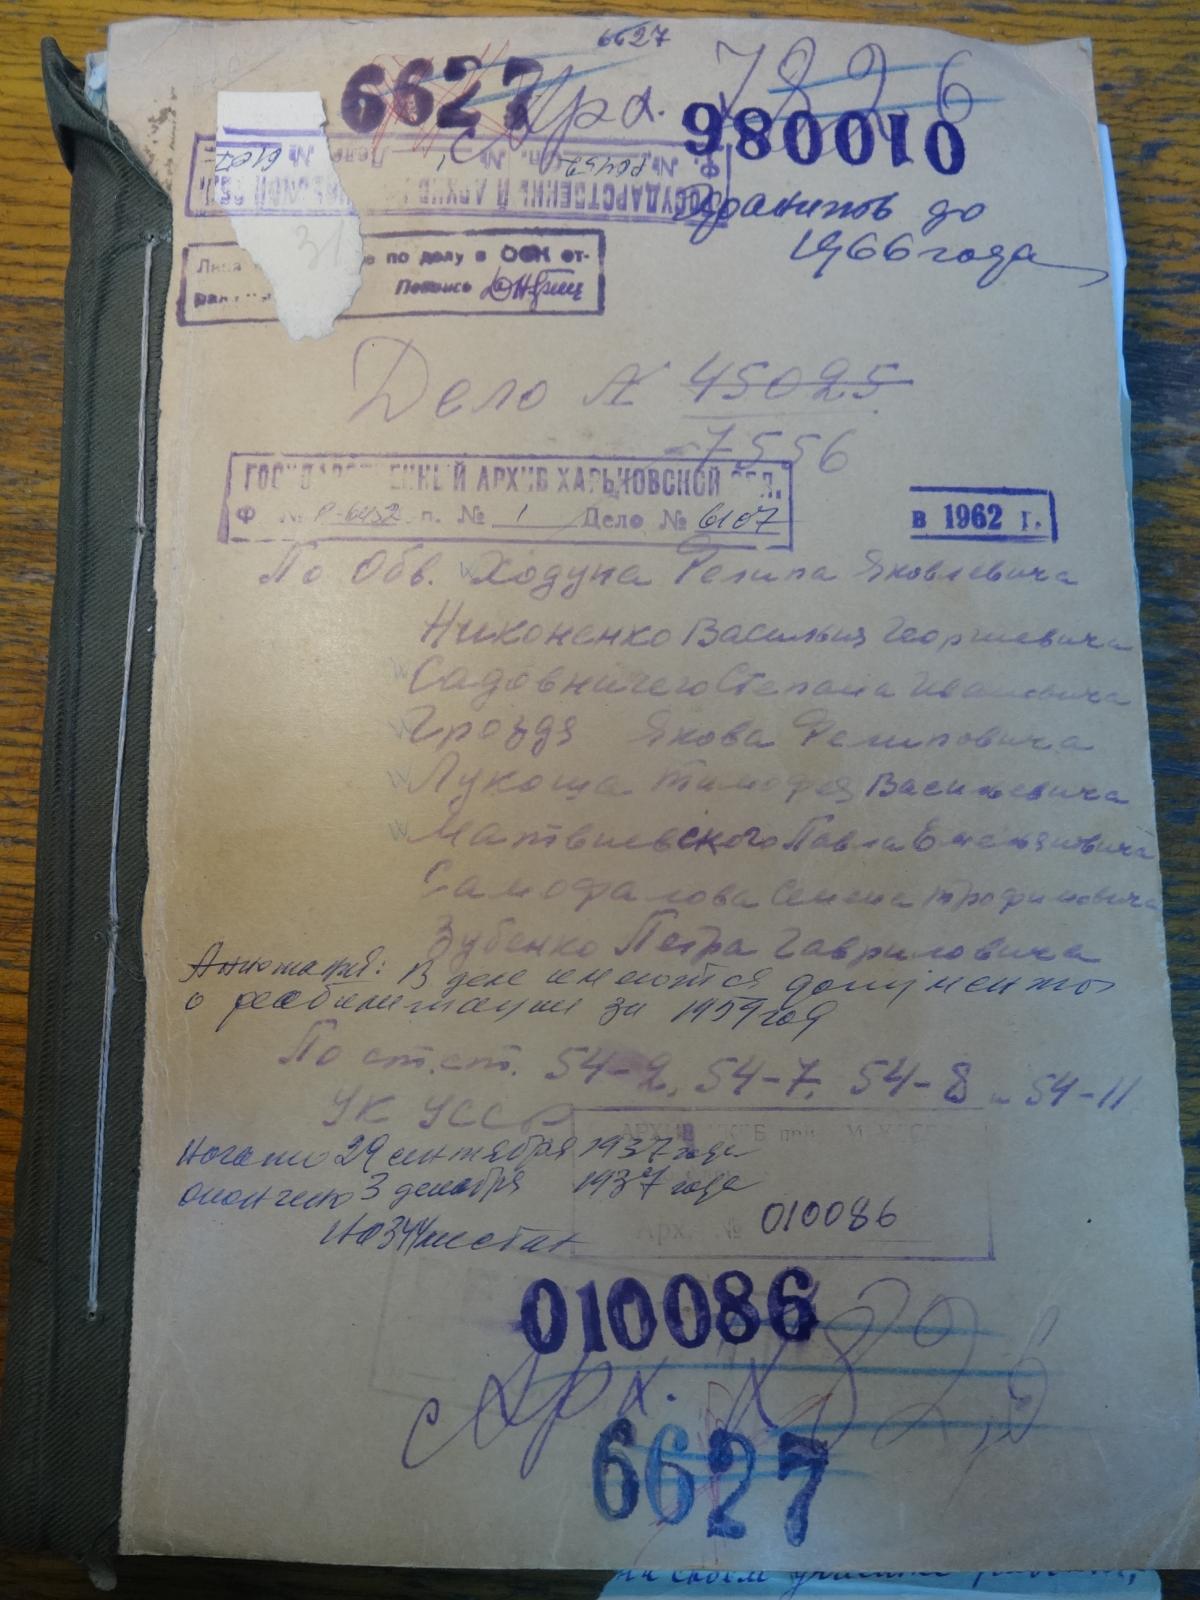 6627
6627
Арх. 7826
980010
Хранить до
1966 года
ГОСУДАРСТВЕННЫЙ АРХИВ
Ф. № Р6452 оп. № 1 Дело № 6107
31
Лица по делу в ОСК от-
Подпись
Дело № 45025
7556
ГОСУДАРСТВЕННЫЙ АРХИВ ХАРЬКОВСКОЙ ОБЛ.
Ф № Р-6452 п. № 1 Дело № 6107
в 1962 г.
По Обв. Ходуна Филипа Яковлевича
Никоненко Василия Георгиевича
Садовничего Степана Ивановича
Гроздя Якова Филиповича
Лукоща Тимофея Васильевича
Матвиевского Павла Емельяновича
Самофалова Семена Трофимовича
Зубенко Петра Гавриловича
Аннотация: В деле имеются документы
о реабилитации за 1959 год
По ст.ст. 54-2, 54-7, 54-8 и 54-11
УК УССР
Начато 29 сентября 1937 года
окончено 3 декабря 1937 года
На 344 листах
Арх. № 010086
010086
Арх. 7826
6627